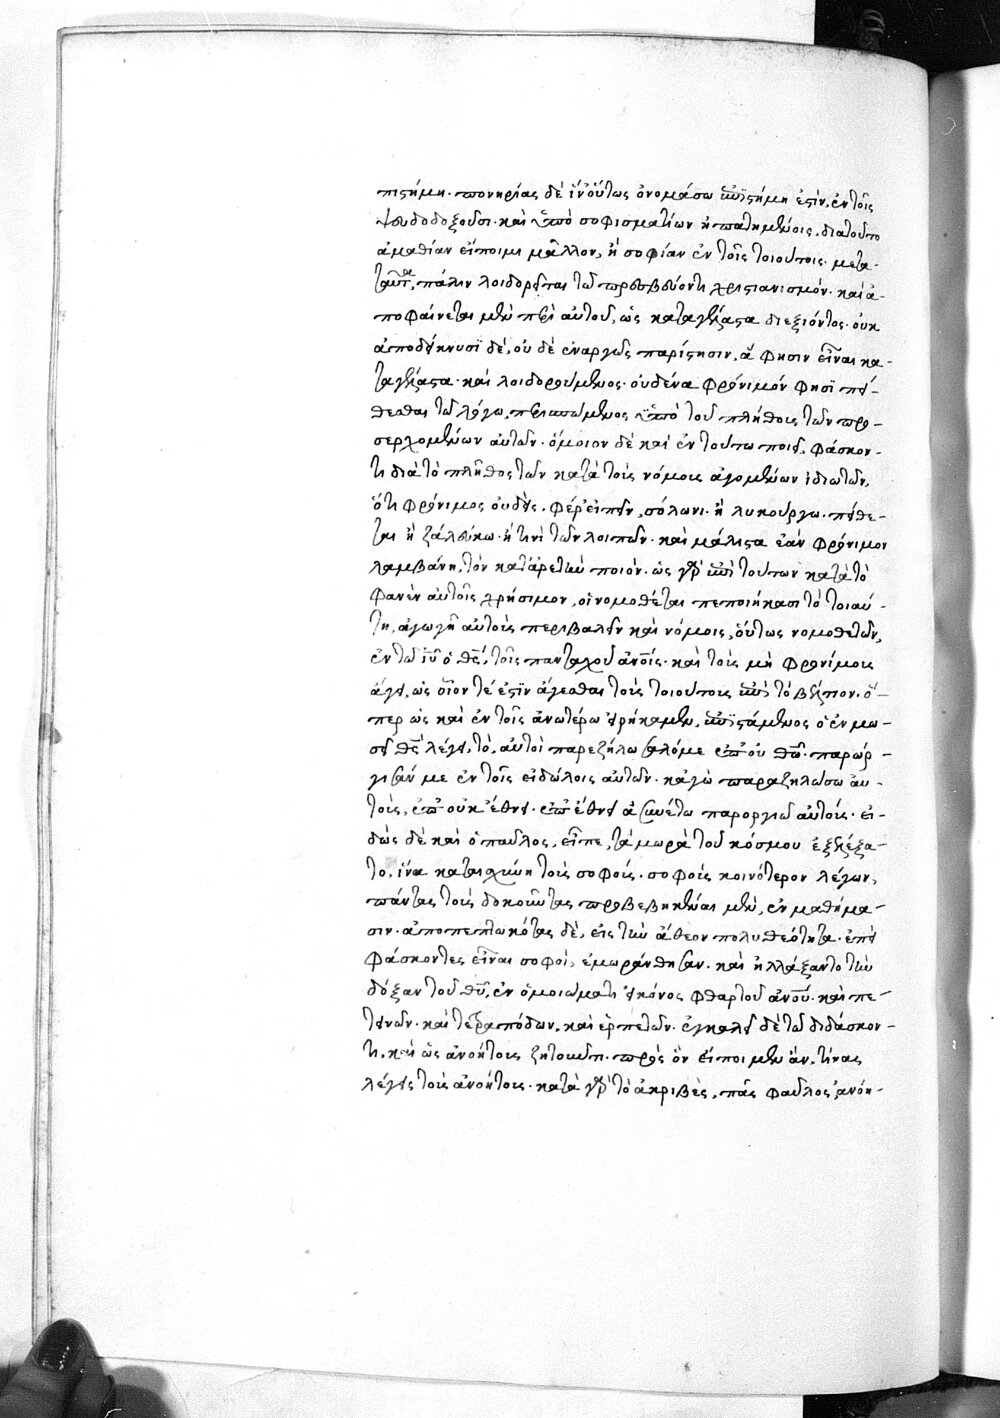 πιστήμη· πονηρίας δὲ ἵν' οὕτως ὀνομάσω ἐπιστήμη ἐστὶν, ἐν τοῖς
ψευδοδοξοῦσι· καὶ ὑπὸ σοφισμάτων ἠπατημένοις, διατοῦτο
ἀμαθίαν εἴποιμι μᾶλλον, ἢ σοφίαν ἐν τοῖς τοιούτοις· μετα-
ταῦτα, πάλιν λοιδορεῖται τῶ πρεσβεύοντι χριστιανισμόν· καὶ ἀ-
ποφαίνεται μὲν περὶ αὐτοῦ, ὡς καταγέλαστα διεξιόντος· οὐκ
ἀποδείκνυσϊ δὲ, οὐ δὲ ἐναργῶς παρίστησιν, ἅ φησιν εἶναι κα-
ταγέλαστα· καὶ λοιδορούμενος· οὐδένα φρόνιμόν φησϊ πεί-
θεσθαι τῶ λόγω, περισπώμενος ὑπὸ τοῦ πλήθους τῶν προ-
σερχομένων αὐτῶν· ὅμοιον δὲ καὶ ἐν τούτω ποιεῖ, φάσκον-
τι διὰ τὸ πλῆθος τῶν κατὰ τοὺς νόμους ἀγομένων ἰδιωτῶν,
ὅτι φρόνιμος οὐδεὶς, φέρ' εἰπεῖν, σόλωνι· ἢ λυκούργω· πείθε-
ται ἢ ζαλεύκω· ἤ τινὶ τῶν λοιπῶν· καὶ μάλιστα ἐὰν φρόνιμον
λαμβάνη, τὸν κατ' ἀρετὴν ποιόν· ὡς γὰρ ἐπὶ τούτων κατὰ τὸ
φανὲν αὐτοῖς χρήσιμον, οἱ νομοθέται πεποιήκασι τὸ τοιαύ-
τη, ἀγωγῆ αὐτοὺς περιβαλεῖν καὶ νόμοις, οὕτως νομοθετῶν,
ἐν τῶ ιυ ὁ θς, τοῖς πανταχοῦ ανοις· καὶ τοὺς μὴ φρονίμους
ἄγει, ὡς οἷον τέ ἐστϊν ἄγεσθαι τοὺς τοιούτους ἐπὶ τὸ βέλτιον· ὅ-
περ ὡς καὶ ἐν τοῖς ἀνωτέρω εἰρήκαμεν, ἐπιστάμενος ὁ ἐν μω-
σεῖ θς λέγει, τὸ, αὐτοὶ παρεζήλωσάν με ἐπ' οὐ θω· παρώρ-
γισάν με ἐν τοῖς εἰδώλοις αὐτῶν· κἀγὼ παραζηλώσω αὐ-
τοὺς, ἐπ' οὐκ ἔθνει· ἐπ' ἔθνει ἀσυνέτω παροργιῶ αὐτούς· εἰ-
δὼς δὲ καὶ ὁ παῦλος, εἶπε, τὰ μωρὰ τοῦ κόσμου ἐξελέξα-
το, ἵνα καταισχύνη τοὺς σοφούς· σοφοὺς κοινότερον λέγων,
πάντας τοὺς δοκοῦντας προβεβηκέναι μὲν, ἐν μαθήμα-
σιν· ἀποπεπτωκότας δὲ, εἰς τὴν ἄθεον πολυθεότητα· ἐπεὶ
φάσκοντες εἶναι σοφοὶ, ἐμωράνθησαν· καὶ ἤλλάξαντο τὴν
δόξαν τοῦ θυ, ἐν ὁμοιώματι εἰκόνος φθαρτοῦ ανου· καὶ πε-
τεινῶν· καὶ τετραπόδων, καὶ ἑρπετῶν. ἐγκαλεῖ δὲ τῶ διδάσκον-
τι, καὶ ὡς ἀνοήτους ζητοῦντι· πρὸς ὃν εἴποιμεν ἄν, τίνας
λέγεις τοὺς ἀνοήτους· κατὰ γὰρ τὸ ἀκριβὲς, πᾶς φαῦλος, ἀνόη-